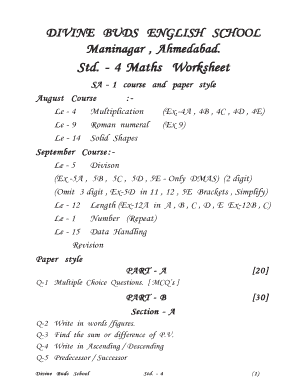 DIVINE BUDS ENGLISH SCHOOL
Maninagar , Ahmedabad.
Std. - 4 Maths Worksheet
SA - 1 course and paper style
August Course :-
Le - 4 Multiplication (Ex.-4A , 4B , 4C , 4D , 4E)
Le - 9 Roman numeral (Ex 9)
Le - 14 Solid Shapes
September Course:-
Le - 5 Divison
(Ex -5A , 5B , 5C , 5D , 5E - Only DMAS) (2 digit)
(Omit 3 digit , Ex-5D in 11 , 12 , 5E Brackets , Simplify)
Le - 12 Length (Ex-12A in A , B , C , D , E Ex-12B , C)
Le - 1 Number (Repeat)
Le - 15 Data Handling
Revision
Paper style
PART - A [20]
Q-1 Multiple Choice Questions. [ MCQ's ]
PART - B [30]
Section - A
Q-2 Write in words /figures.
Q-3 Find the sum or difference of P.V.
Q-4 Write in Ascending / Descending
Q-5 Predecessor / Successor
Divine Buds School Std. - 4 (1)